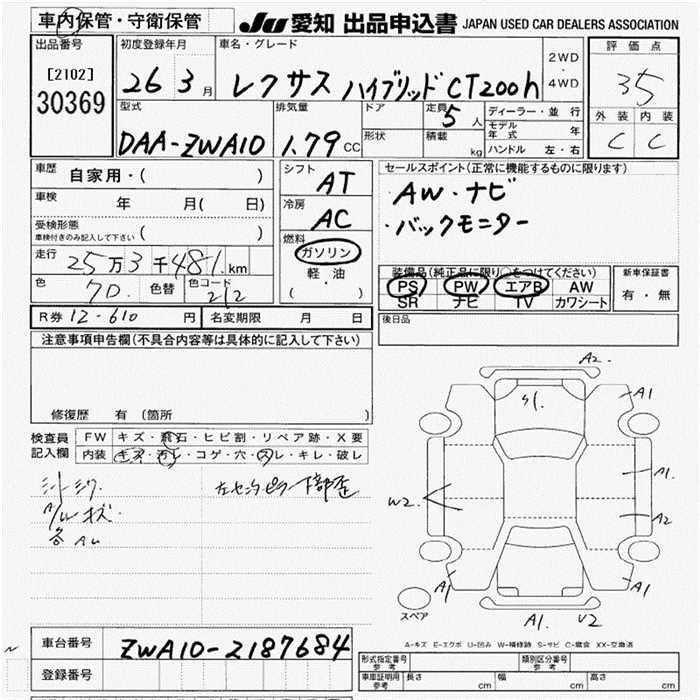 車内保管・守衛保管
JU 愛知 出品申込書 JAPAN USED CAR DEALERS ASSOCIATION
出品番号
[2102]
30369
初度登録年月
26 3 月
車名・グレード
レクサス ハイブリッド CT200h
2WD
・
4WD
評価点
3.5
外装 内装
C C
型式
DAA-ZWA10
排気量
1.79 CC
ドア
形状
定員 5 人
積載 kg
ディーラー・並行
モデル年式 年
ハンドル 左・右
車歴
自家用・( )
車検
年 月( 日)
受検形態
車検付きのみ記入して下さい ( )
走行
25万3千481 km
色
70.
色替
色コード
212
シフト
AT
冷房
AC
燃料
ガソリン
軽・油
( )
セールスポイント(正常に機能するものに限ります)
AW・ナビ
バックモニター
装備品(純正品に限り○をつけてください)
PS PW エアB AW
SR ナビ TV カワシート
新車保証書
有・無
R券 12-610 円
名変期限 月 日
後日品
注意事項申告欄(不具合内容等は具体的に記入して下さい)
修復歴 有 (箇所 )
検査員
記入欄
FW キズ・飛石・ヒビ割・リペア跡・X要
内装 キズ・汚レ・コゲ・穴・スレ・キレ・破レ
シートシワ
左センターピラー下部歪
A/W キズ
各AU
A2
A1
A1
A2
W2
A1
A1
A1 U2
スペア
A-キズ E-エクボ U-凹み W-補修跡 S-サビ C-腐食 XX-交換済
車台番号
ZWA10-2187684
登録番号
形式指定番号
参考
類別区分番号
参考
車車証明用
参考
長さ cm 幅 cm 高さ cm